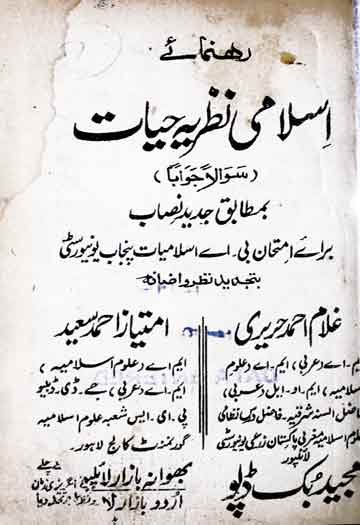 رهنمائے
اسلامی نظریہ حیات
(سوالاً جواباً)
بمطابق جدید نصاب
برائے امتحان بی۔ اے اسلامیات پنجاب یونیورسٹی
بتجدید نظر و اضافہ
غلام احمد حریری
ایم۔ اے (عربی) ایم۔ اے (علوم
اسلامیہ) ایم۔ او۔ ایل (عربی)
فاضل السنہ شرقیہ۔ فاضل درس نظامی
علوم اسلامیہ مغربی پاکستان زرعی یونیورسٹی
لائلپور
امتیاز احمد سعید
ایم اے (علوم اسلامیہ)
ایم۔ اے (عربی) جے۔ ڈی۔ ڈبلیو
پی۔ ای۔ ایس شعبہ علوم اسلامیہ
گورنمنٹ کالج لاہور۔
مجید بک ڈپو
بھوانہ بازار لائلپور
اردو بازار لاہور